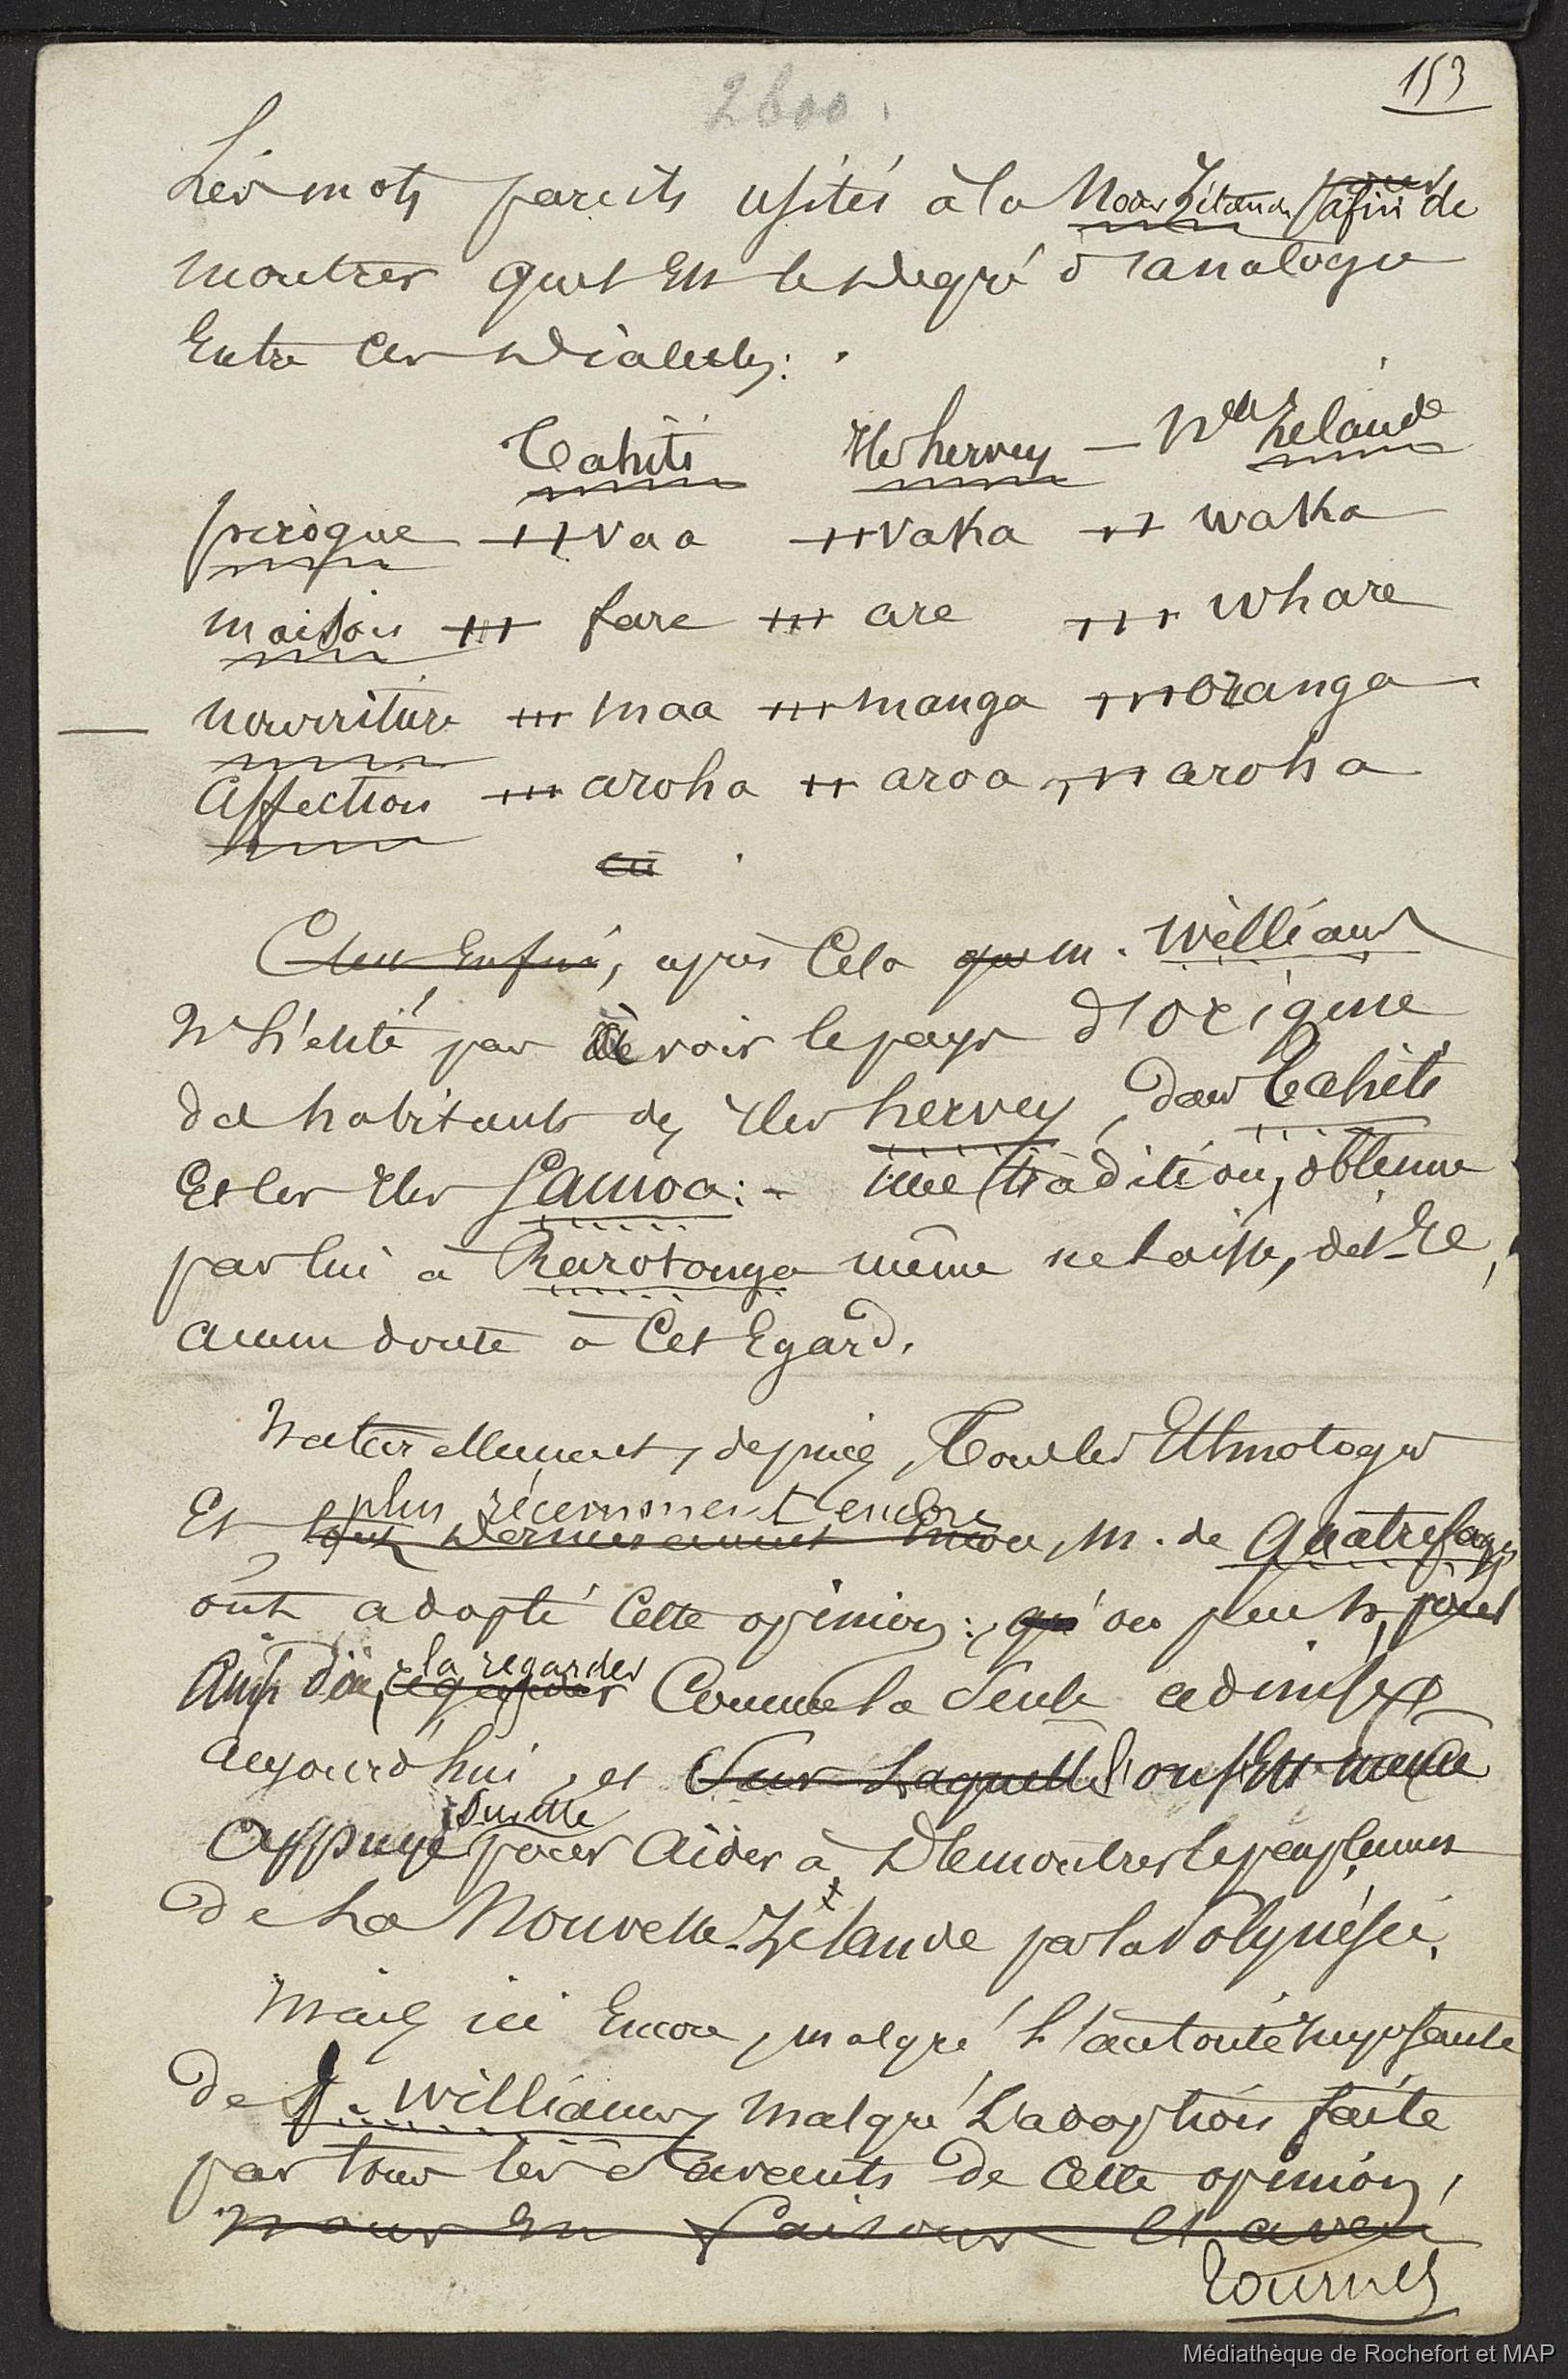 153
2600.
Les mots pareils usités à la Nouv Zélande pour afin de
montrer quel est le degré d'analogie
entre ces dialectes:
Tahiti Iles hervey — Nlle Zelande
pirogue vaa vaka waka
maison fare are whare
nourriture maa manga oranga
affection aroha aroa aroha
enfin, après cela que M. Williams
N'hésite pas à voir le pays d'origine
des habitants des Iles hervey, dans Tahiti
et les Iles Samoa: - une tradition, obtenue
par lui à Rarotonga même ne laisse, dit-il,
aucun doute à cet Egard.
Naturellement, depuis, Tous les Ethnologues
plus récemment encore
Et tout dernierement encore, M. de Quatrefages
ont adopté cette opinion: qu' on peut, pour
la regarder
Ainsi dire, regarder Comme la seule admise
aujourd'hui, et sur laquelle on s'est même
sur elle
appuyé pour aider à Démontrer le peuplement
de la Nouvelle-Zélande par la Polynésie.
Mais ici Encore, malgré l'autorité imposante
de J. Williams, malgré l'adoption faite
par tous les Savants de cette opinion,
nous en faisons et aveu
tournez
Médiathèque de Rochefort et MAP